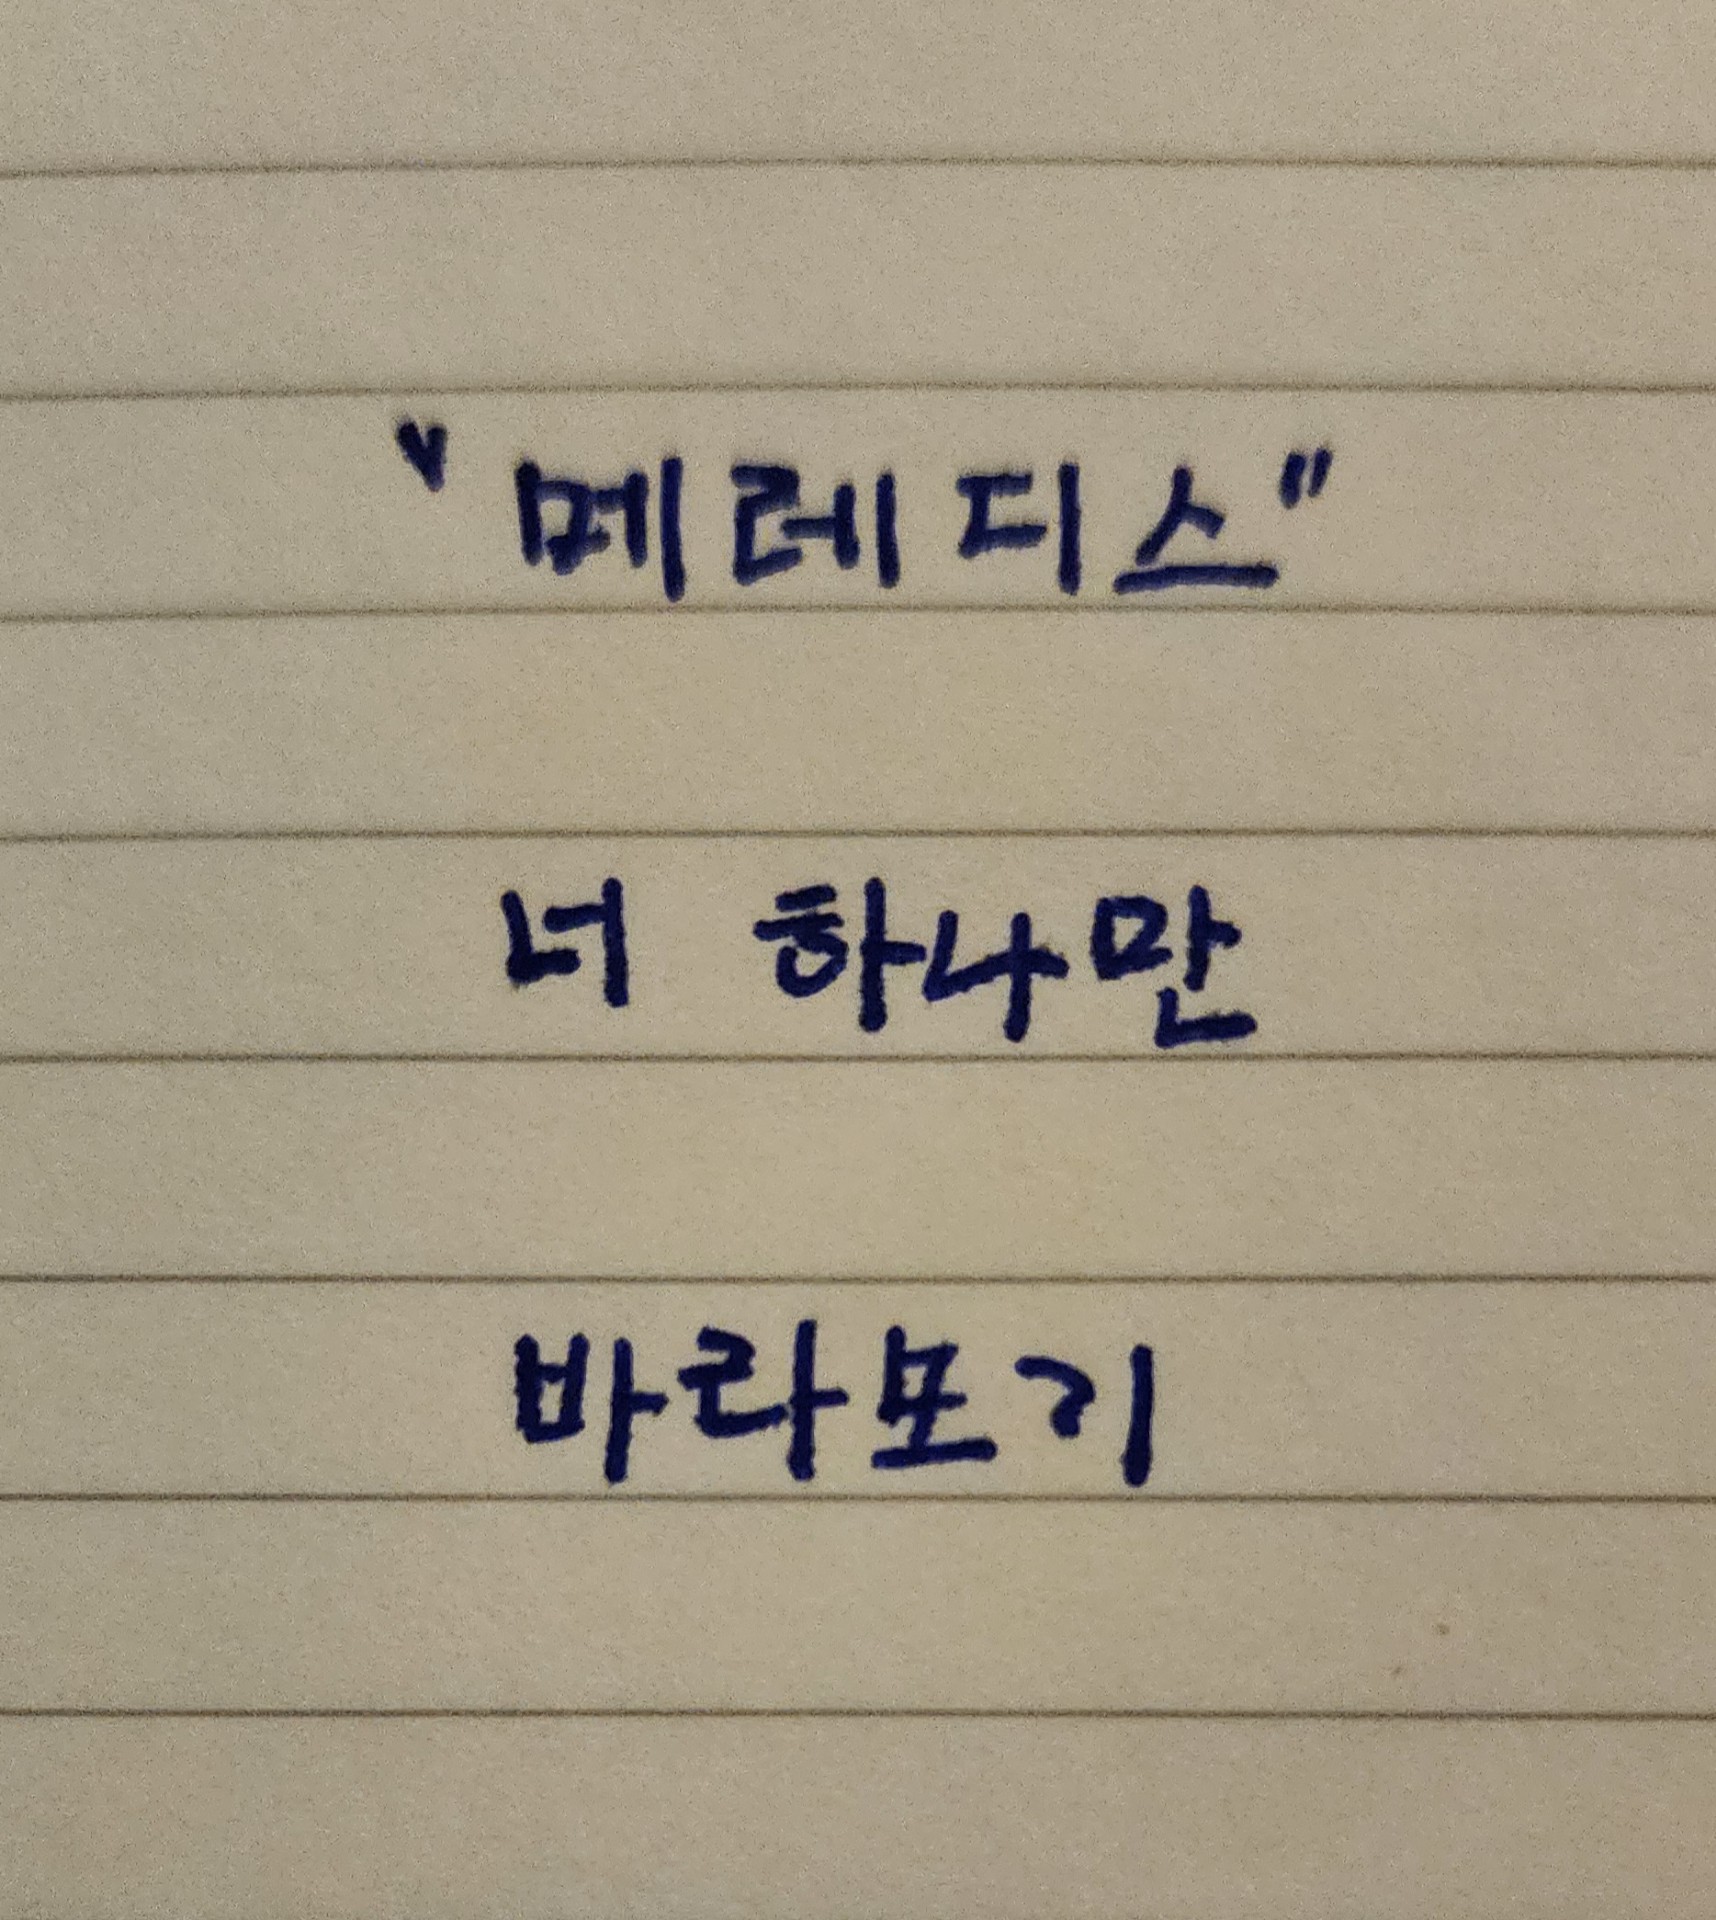 "메레디스"
너 하나만
바라보기